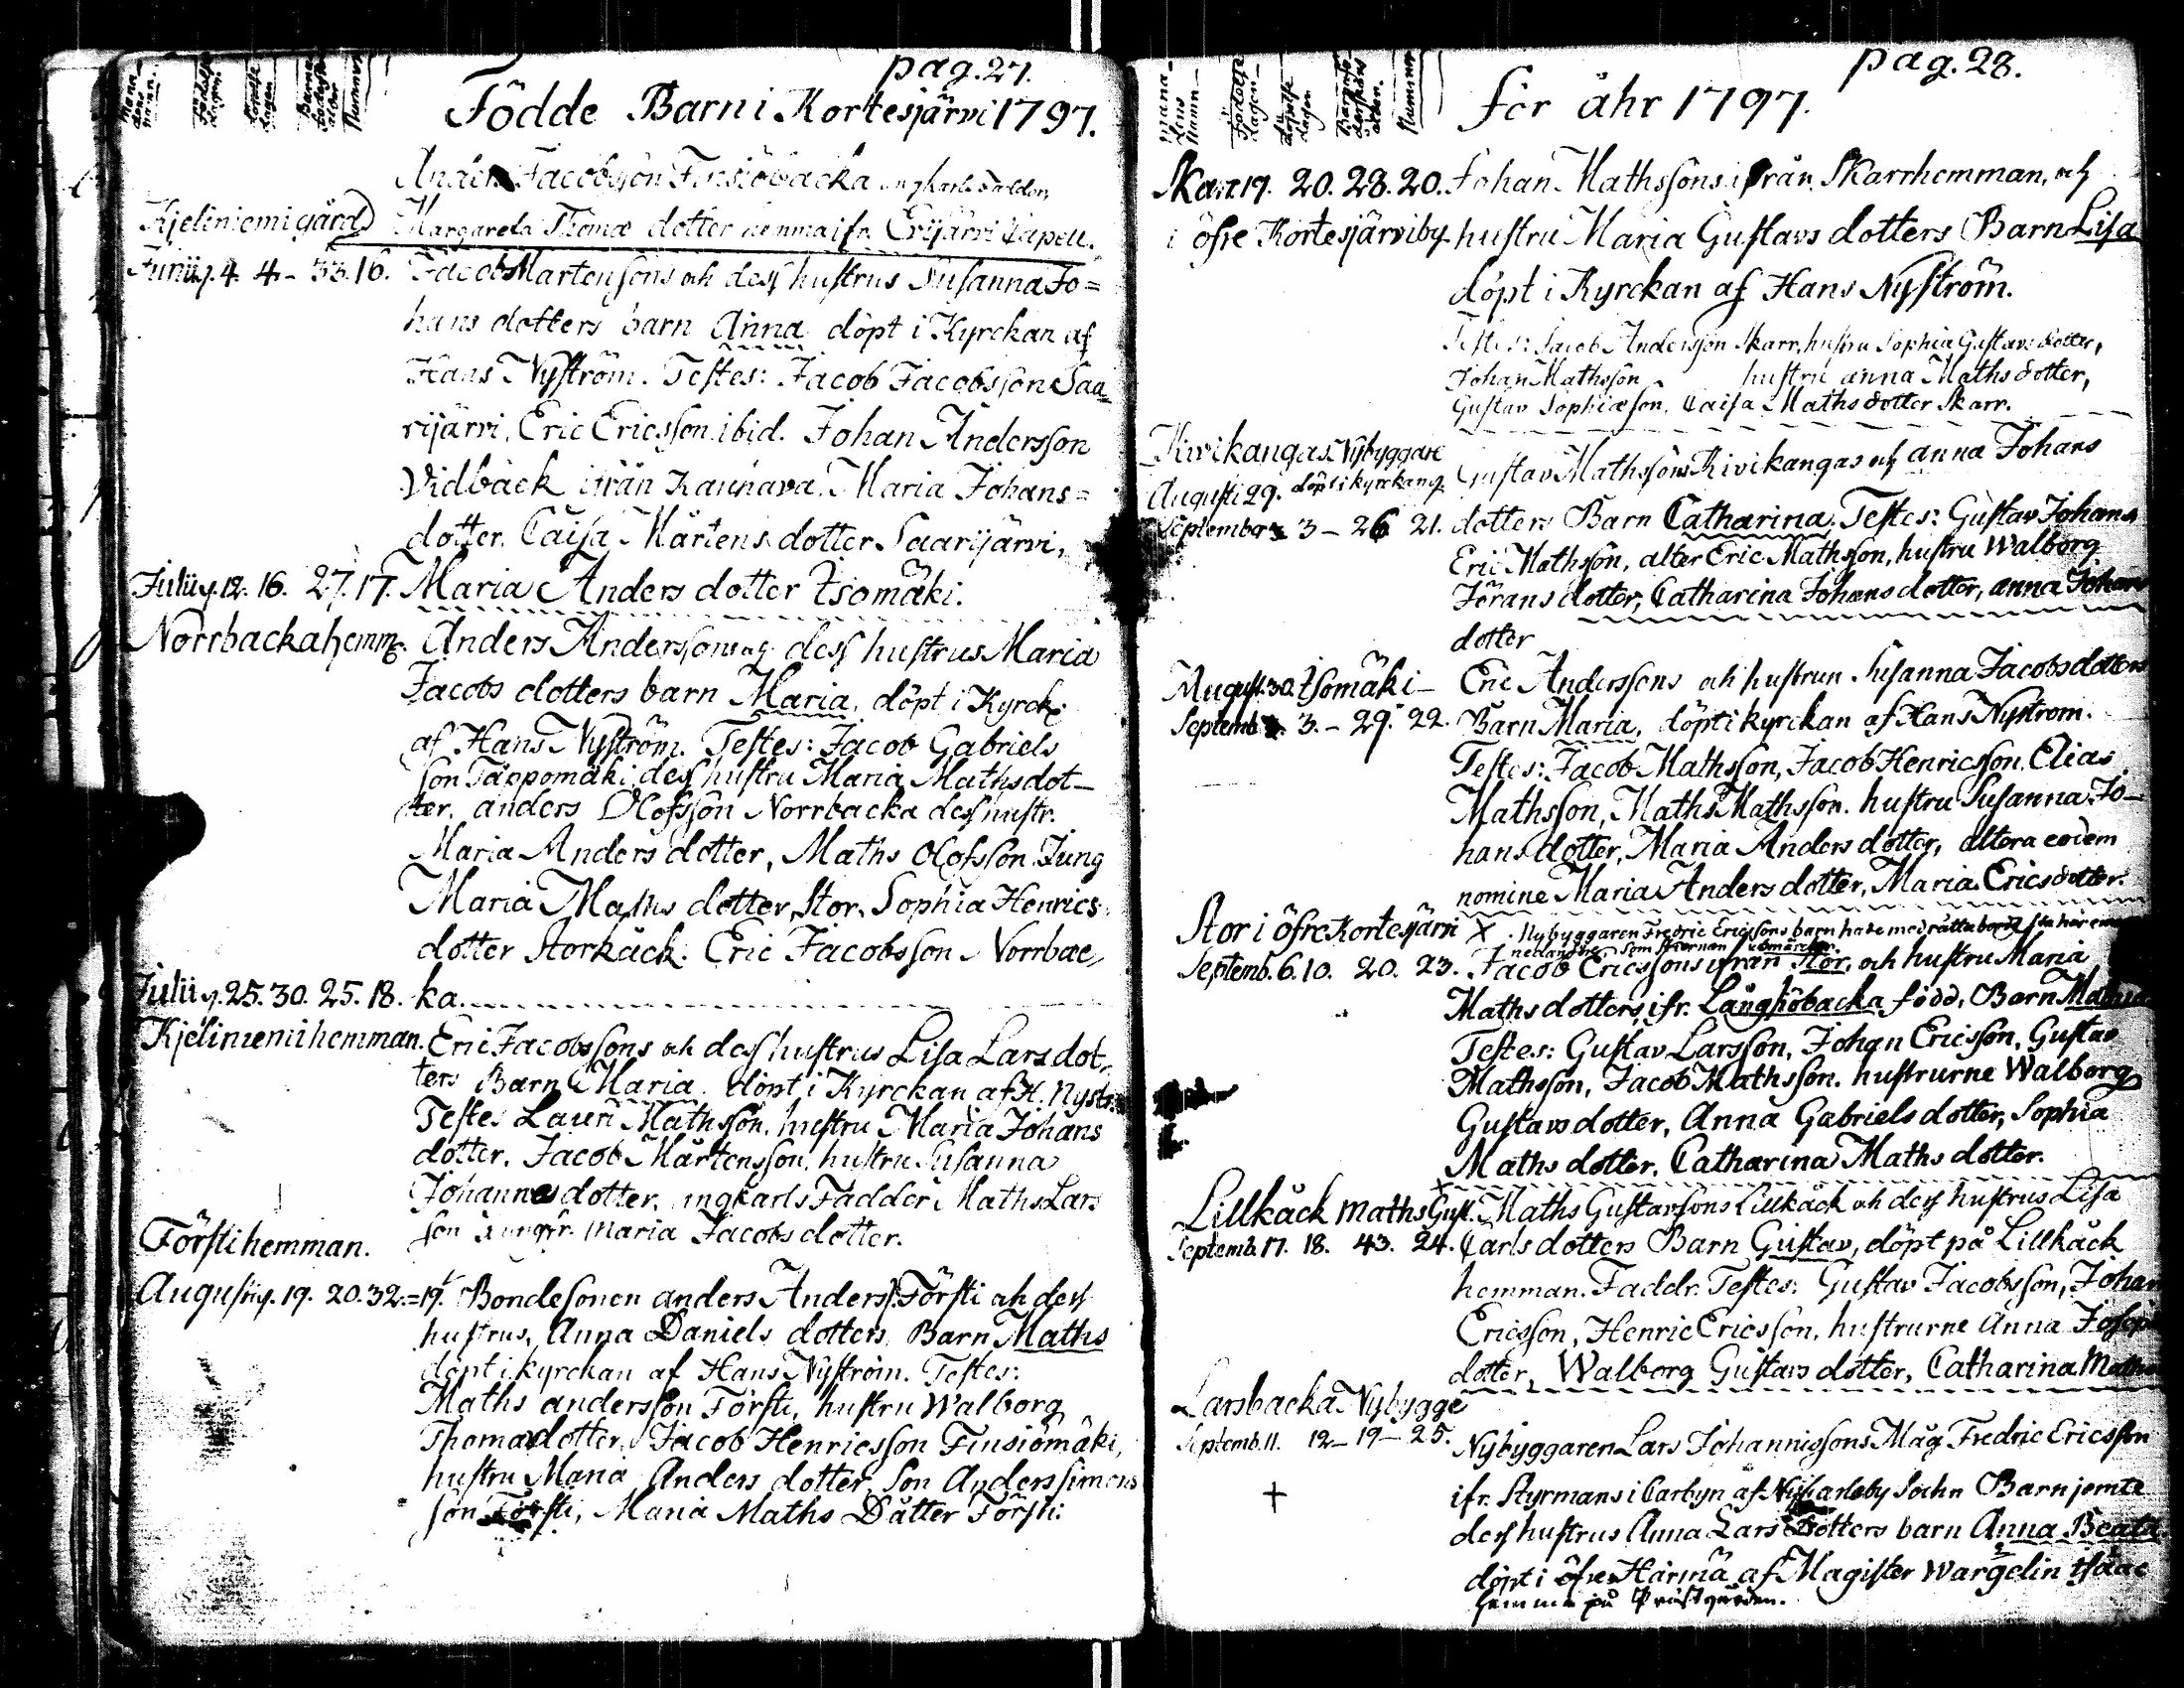 pag. 27.
Födde Barn i Kortesjärvi 1797.
Jacobsson
Kjeliniemi gård Margareta Thomæ dotter hemma ifr. Evijärvi Capell.
Junii. 4. 4 - 33. 16. Jacob Mårtensons och dess hustrus Susanna Jo=
hans dotters barn Anna döpt i Kyrckan af
Hans Nyström. Testes: Jacob Jacobsson Saa=
rijärvi, Eric Ericsson ibid. Johan Andersson
Vidbäck ifrån Kauhava. Maria Johans=
dotter. Caisa Mårtens dotter Saarijärvi,
Julii. 12. 16. 27. 17. Maria Anders dotter Isomäki.
Norrbacka hemm. Anders Anderssons och dess hustrus Maria
Jacobs dotters barn Maria, döpt i Kyrck.
af Hans Nyström. Testes: Jacob Gabriels
son Täppomäki dess hustru Maria Mathsdot-
ter. anders Olofsson Norrbacka dess hustr.
Maria Anders dotter, Maths Olofsson Jung
Maria Maths dotter Stor. Sophia Henrics
dotter Storkäck. Eric Jacobsson Norrbac-
Julii. 25. 30. 25. 18. ka.
Kjeliniemi hemman. Eric Jacobssons och dess hustrus Lisa Larsdot-
ters Barn Maria. döpt i Kyrckan af H. Nystr.
Testes Lauri Mathsson, hustru Maria Johans
dotter. Jacob Mårtensson, hustru Susanna
Johannes dotter. ungkarls Fadder Maths Lars
son Jungfr. Maria Jacobs dotter.
Försti hemman.
Augusti. 19. 20. 32. =19. Bondesonen anders Anders. Försti och dess
hustrus, Anna Daniels dotters Barn Maths
döpt i kyrckan af Hans Nyström. Testes:
Maths andersson Försti, hustru Walborg
Thomædotter. Jacob Henricsson Finsiömäki,
hustru Maria Anders dotter, Son Anders Simons
son Försti, Maria Maths Dåtter Försti.
pag. 28.
för åhr 1797.
Skarr. 19. 20. 28. 20. Johan Mathssons ifrån Skarrhemman, och
i öfre Kortesjärvi by hustru Maria Gustavs dotters Barn Lisa
döpt i Kyrckan af Hans Nyström.
Testes: Jacob Andersson Skarr, hustru Sophia Gustavs dotter,
Johan Mathsson hustru anna Maths dotter,
Gustav Sophiæson, Caisa Maths dotter Skarr.
Kivikangas Nybyggare
Augusti 29. döpt i kyrckan Gustav Mathssons Kivikangas och anna Johans
September 3 - 26 21. dotters Barn Catharina. Testes: Gustav Johans
Eric Mathsson, alter Eric Mathsson, hustru Walborg
Jörans dotter, Catharina Johans dotter, anna Johans
dotter
August. 30. Isomäki - Eric Anderssons och hustrun Susanna Jacobs dotters
Septemb. 3. - 29. 22. Barn Maria, döpt i kyrckan af Hans Nyström.
Testes: Jacob Mathsson, Jacob Henricsson, Elias
Mathsson, Maths Mathsson. hustru Susanna Jo-
hans dotter, Maria Anders dotter, altera eodem
nomine Maria Anders dotter, Maria Ericsdotter.
Stor i öfre Kortesjärvi X. Nybyggaren Fredric Ericssons barn hade med rätta bordt stå här
nedanföre, som Stiernan utmärcker.
Septemb. 6. 10. 20. 23. Jacob Ericssons ifrån Stor, och hustru Maria
Maths dotters, ifr. Långsiöbacka född, Barn
Testes: Gustav Larsson, Johan Ericsson, Gustav
Mathsson, Jacob Mathsson. hustrurne Walborg
Gustavs dotter, Anna Gabriels dotter, Sophia
Maths dotter. Catharina Maths dotter.
Lillkäck Maths Gust. Maths Gustavsons Lillkäck och dess hustrus Lisa
Septemb. 17. 18. 43. 24. Carls dotters Barn Gustav, döpt på Lillkäck
hemman. Faddr. Testes: Gustav Jacobsson, Johan
Ericsson, Henric Ericsson, hustrurne Anna Joseph
dotter, Walborg Gustavs dotter, Catharina Maths
Larsbacka Nybygge
Septemb. 11. 12 - 19 - 25. Nybyggaren Lars Johannissons Måg Fredric Ericsson
ifr. Styrmans i Carbyn af Nycarleby Sochn Barn jemte
dess hustrus Anna Lars Dotters barn Anna Beata
döpt i öfre Härmä af Magister Wargelin Isaac
hemma på Prästgården.